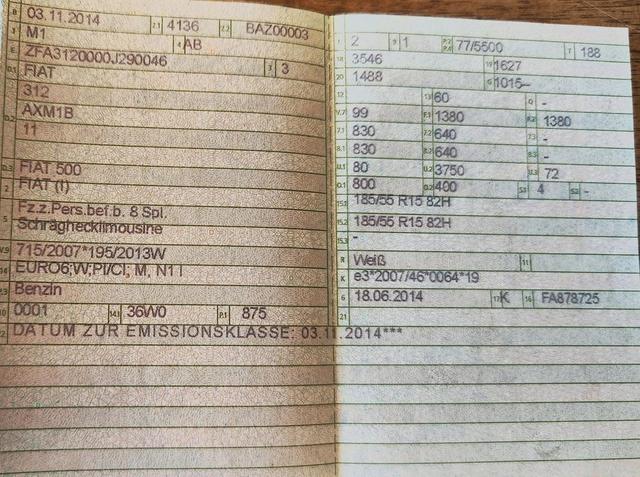 B 03.11.2014 2.1 4136 2.2 BAZ00003
J M1 4 AB
E ZFA3120000J290046 3 3
D.1 FIAT
312
D.2 AXM1B
11
D.3 FIAT 500
2 FIAT (I)
5 Fz.z.Pers.bef.b. 8 Spl.
Schräghecklimousine
V.9 715/2007*195/2013W
14 EURO6;W;PI/CI; M, N1 I
P.3 Benzin
10 0001 14.1 36W0 P.1 875
22 DATUM ZUR EMISSIONSKLASSE: 03.11.2014***
L 2 9 1 P.2 P.4 77/5500 T 188
18 3546 19 1627
20 1488 G 1015--
12 13 60 Q -
V.7 99 F.1 1380 F.2 1380
7.1 830 7.2 640 7.3 -
8.1 830 8.2 640 8.3 -
U.1 80 U.2 3750 U.3 72
O.1 800 O.2 400 S.1 4 S.2 -
15.1 185/55 R15 82H
15.2 185/55 R15 82H
15.3 -
R Weiß 11
K e3*2007/46*0064*19
6 18.06.2014 17 K 16 FA878725
21